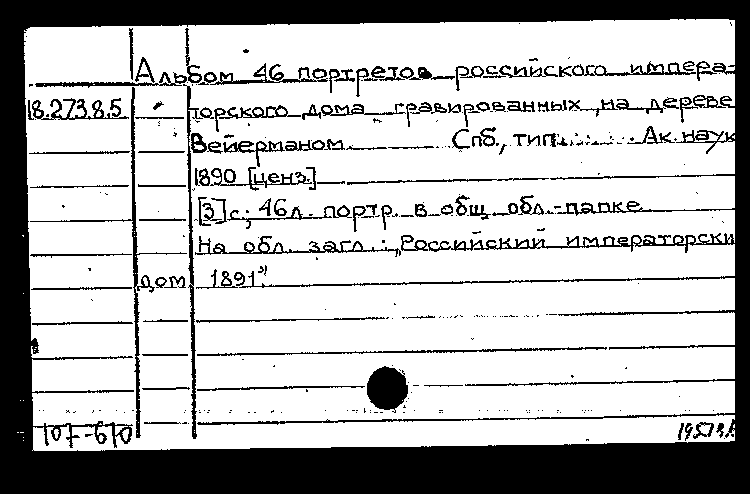 Альбом 46 портретов российского импера-
18.273.8.5 торского дома гравированных на дереве
Вейерманом. Спб., тип. Ак. наук
1890 [ценз.]
[3] с; 46 л. портр. в общ. обл.-папке
На обл. загл.: „Российский императорски
дом 1891".
107-610